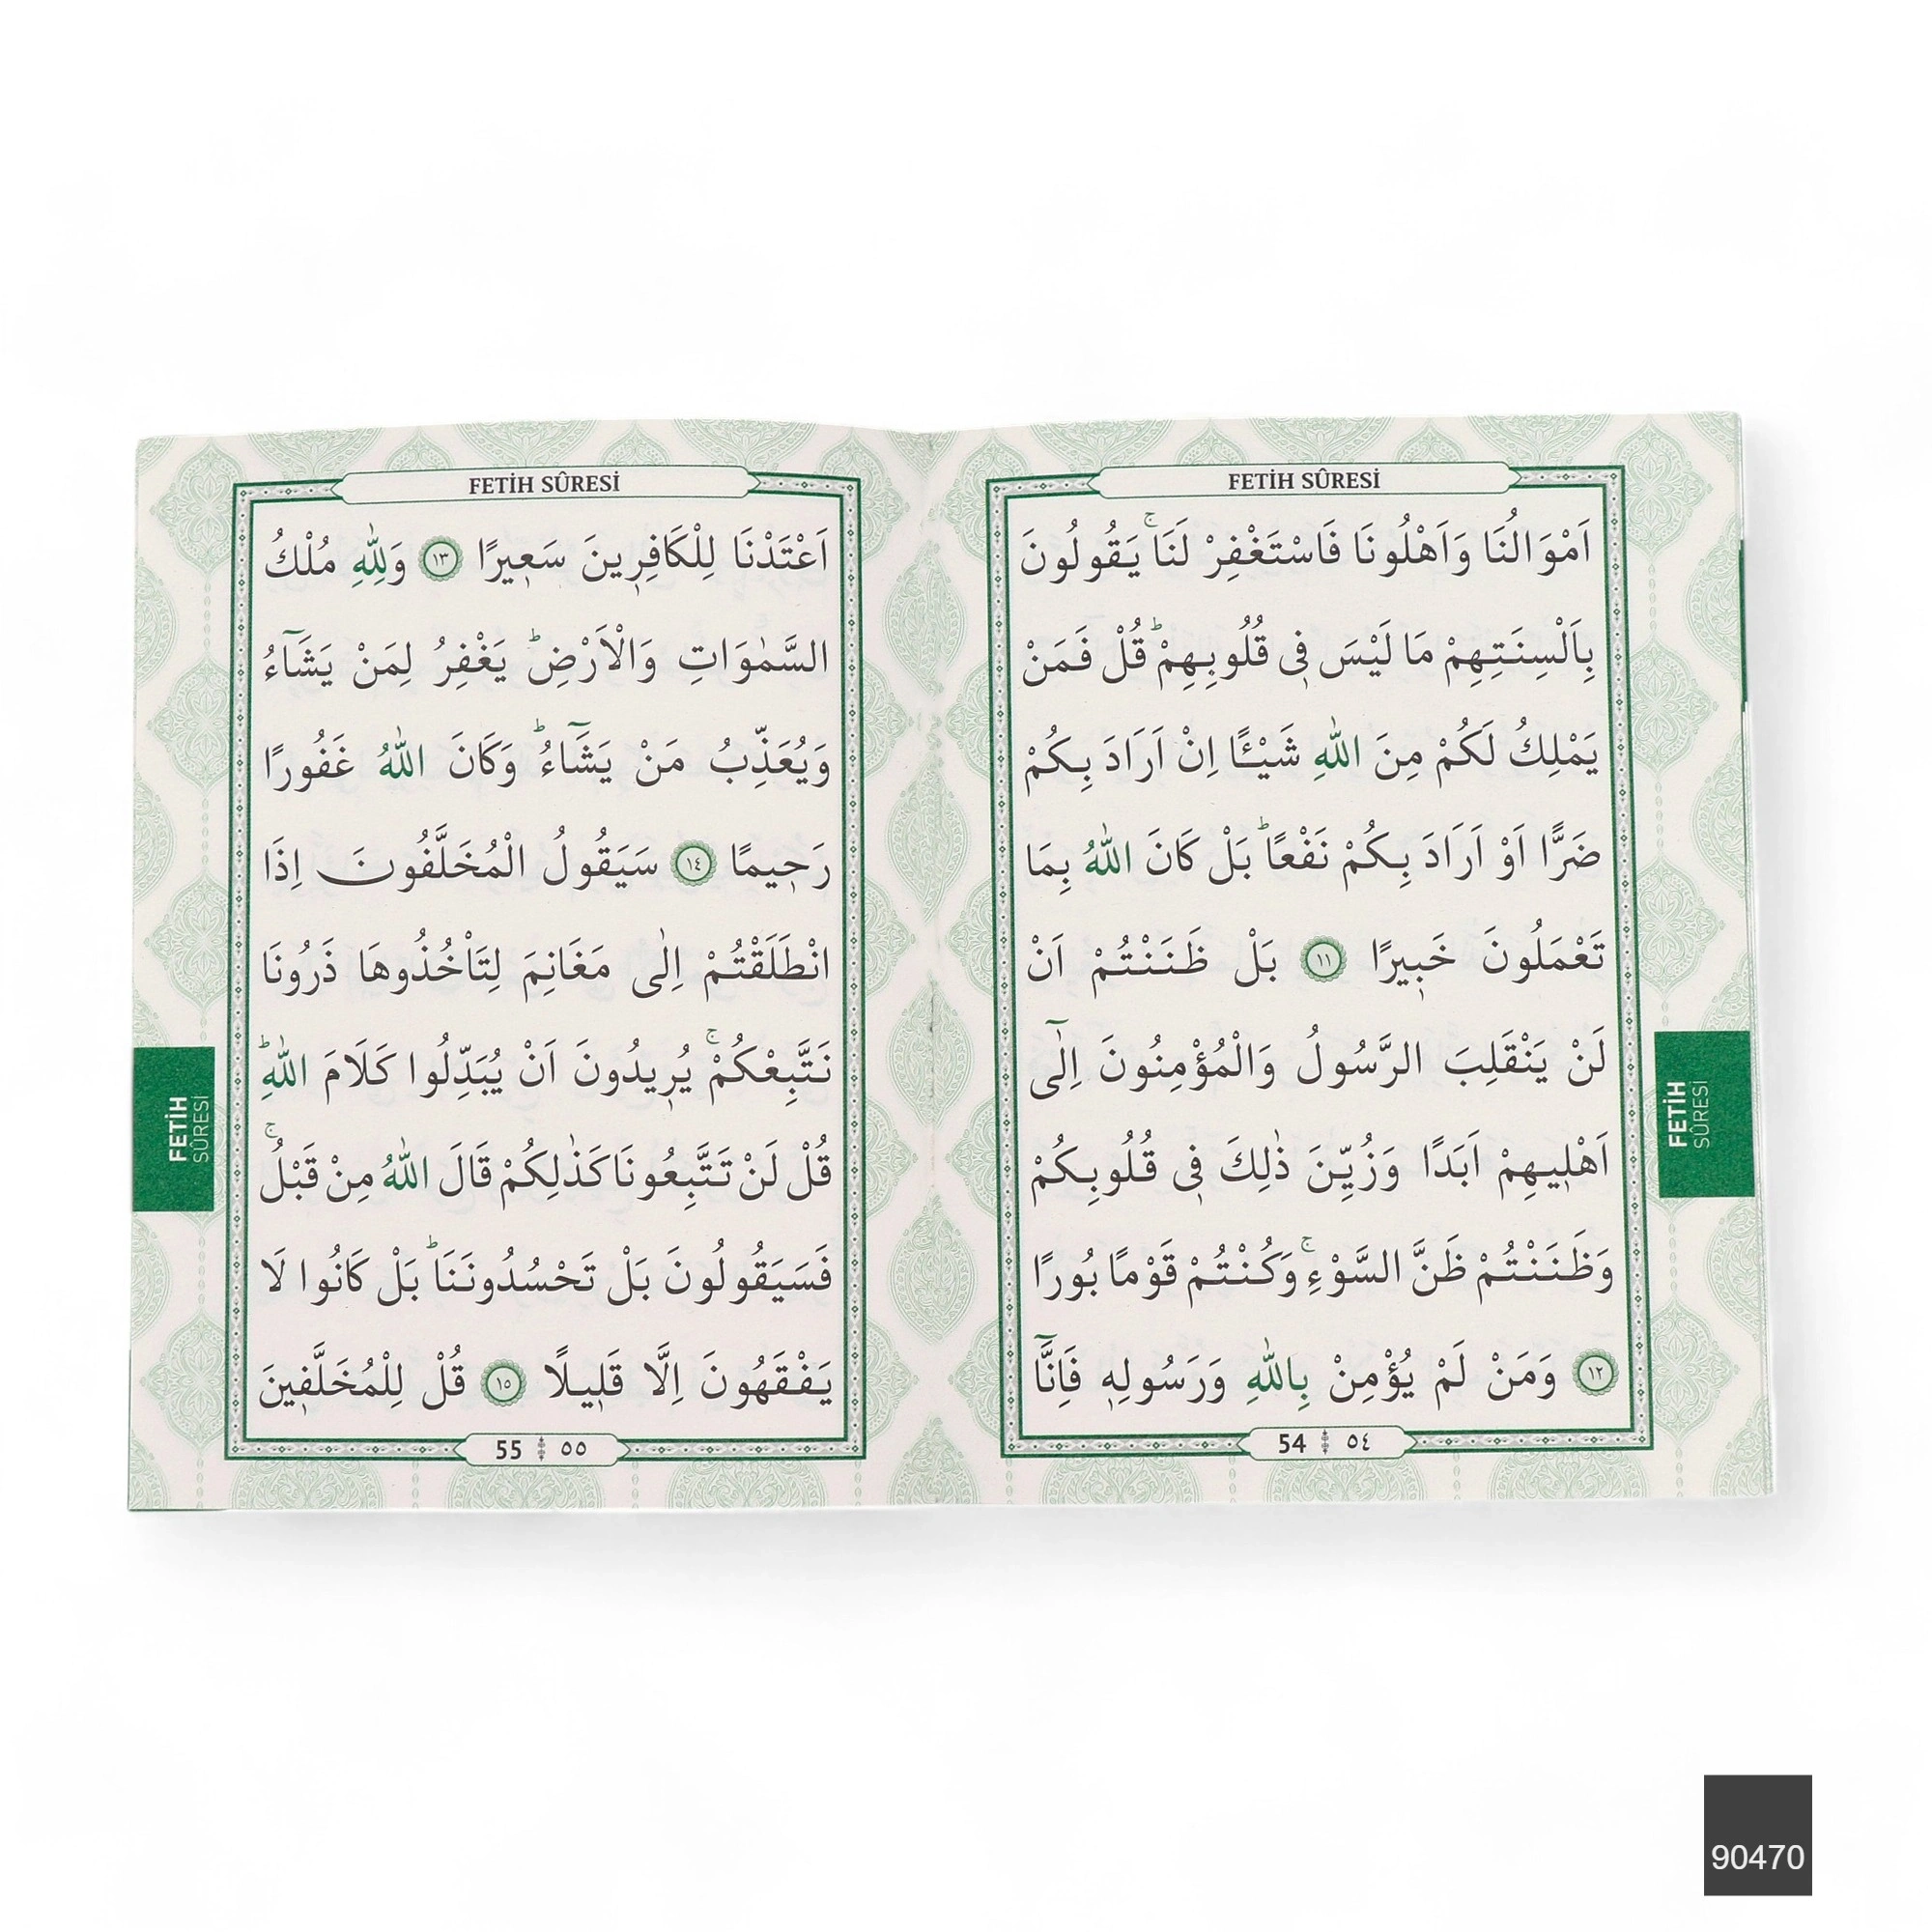 FETİH SÛRESİ
اَمْوَالُنَا وَاَهْلُونَا فَاسْتَغْفِرْ لَنَاۚ يَقُولُونَ
بِاَلْسِنَتِهِمْ مَا لَيْسَ فٖى قُلُوبِهِمْؕ قُلْ فَمَنْ
يَمْلِكُ لَكُمْ مِنَ اللّٰهِ شَيْـًٔا اِنْ اَرَادَ بِكُمْ
ضَرًّا اَوْ اَرَادَ بِكُمْ نَفْعًاؕ بَلْ كَانَ اللّٰهُ بِمَا
تَعْمَلُونَ خَبٖيرًا ﴿١١﴾ بَلْ ظَنَنْتُمْ اَنْ
لَنْ يَنْقَلِبَ الرَّسُولُ وَالْمُؤْمِنُونَ اِلٰٓى
اَهْلٖيهِمْ اَبَدًا وَزُيِّنَ ذٰلِكَ فٖى قُلُوبِكُمْ
وَظَنَنْتُمْ ظَنَّ السَّوْءِۚ وَكُنْتُمْ قَوْمًا بُورًا
﴿١٢﴾ وَمَنْ لَمْ يُؤْمِنْ بِاللّٰهِ وَرَسُولِهٖ فَاِنَّٓا
54 ٥٤
FETİH
SÛRESİ
FETİH SÛRESİ
اَعْتَدْنَا لِلْكَافِرٖينَ سَعٖيرًا ﴿١٣﴾ وَلِلّٰهِ مُلْكُ
السَّمٰوَاتِ وَالْاَرْضِؕ يَغْفِرُ لِمَنْ يَشَٓاءُ
وَيُعَذِّبُ مَنْ يَشَٓاءُؕ وَكَانَ اللّٰهُ غَفُورًا
رَحٖيمًا ﴿١٤﴾ سَيَقُولُ الْمُخَلَّفُونَ اِذَا
انْطَلَقْتُمْ اِلٰى مَغَانِمَ لِتَاْخُذُوهَا ذَرُونَا
نَتَّبِعْكُمْۚ يُرٖيدُونَ اَنْ يُبَدِّلُوا كَلَامَ اللّٰهِؕ
قُلْ لَنْ تَتَّبِعُونَا كَذٰلِكُمْ قَالَ اللّٰهُ مِنْ قَبْلُۚ
فَسَيَقُولُونَ بَلْ تَحْسُدُونَنَاؕ بَلْ كَانُوا لَا
يَفْقَهُونَ اِلَّا قَلٖيلًا ﴿١٥﴾ قُلْ لِلْمُخَلَّفٖينَ
55 ٥٥
FETİH
SÛRESİ
90470